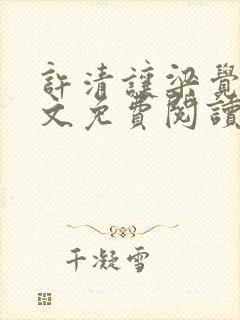 許清讓梁覺
文免費閱讀
千凝雪